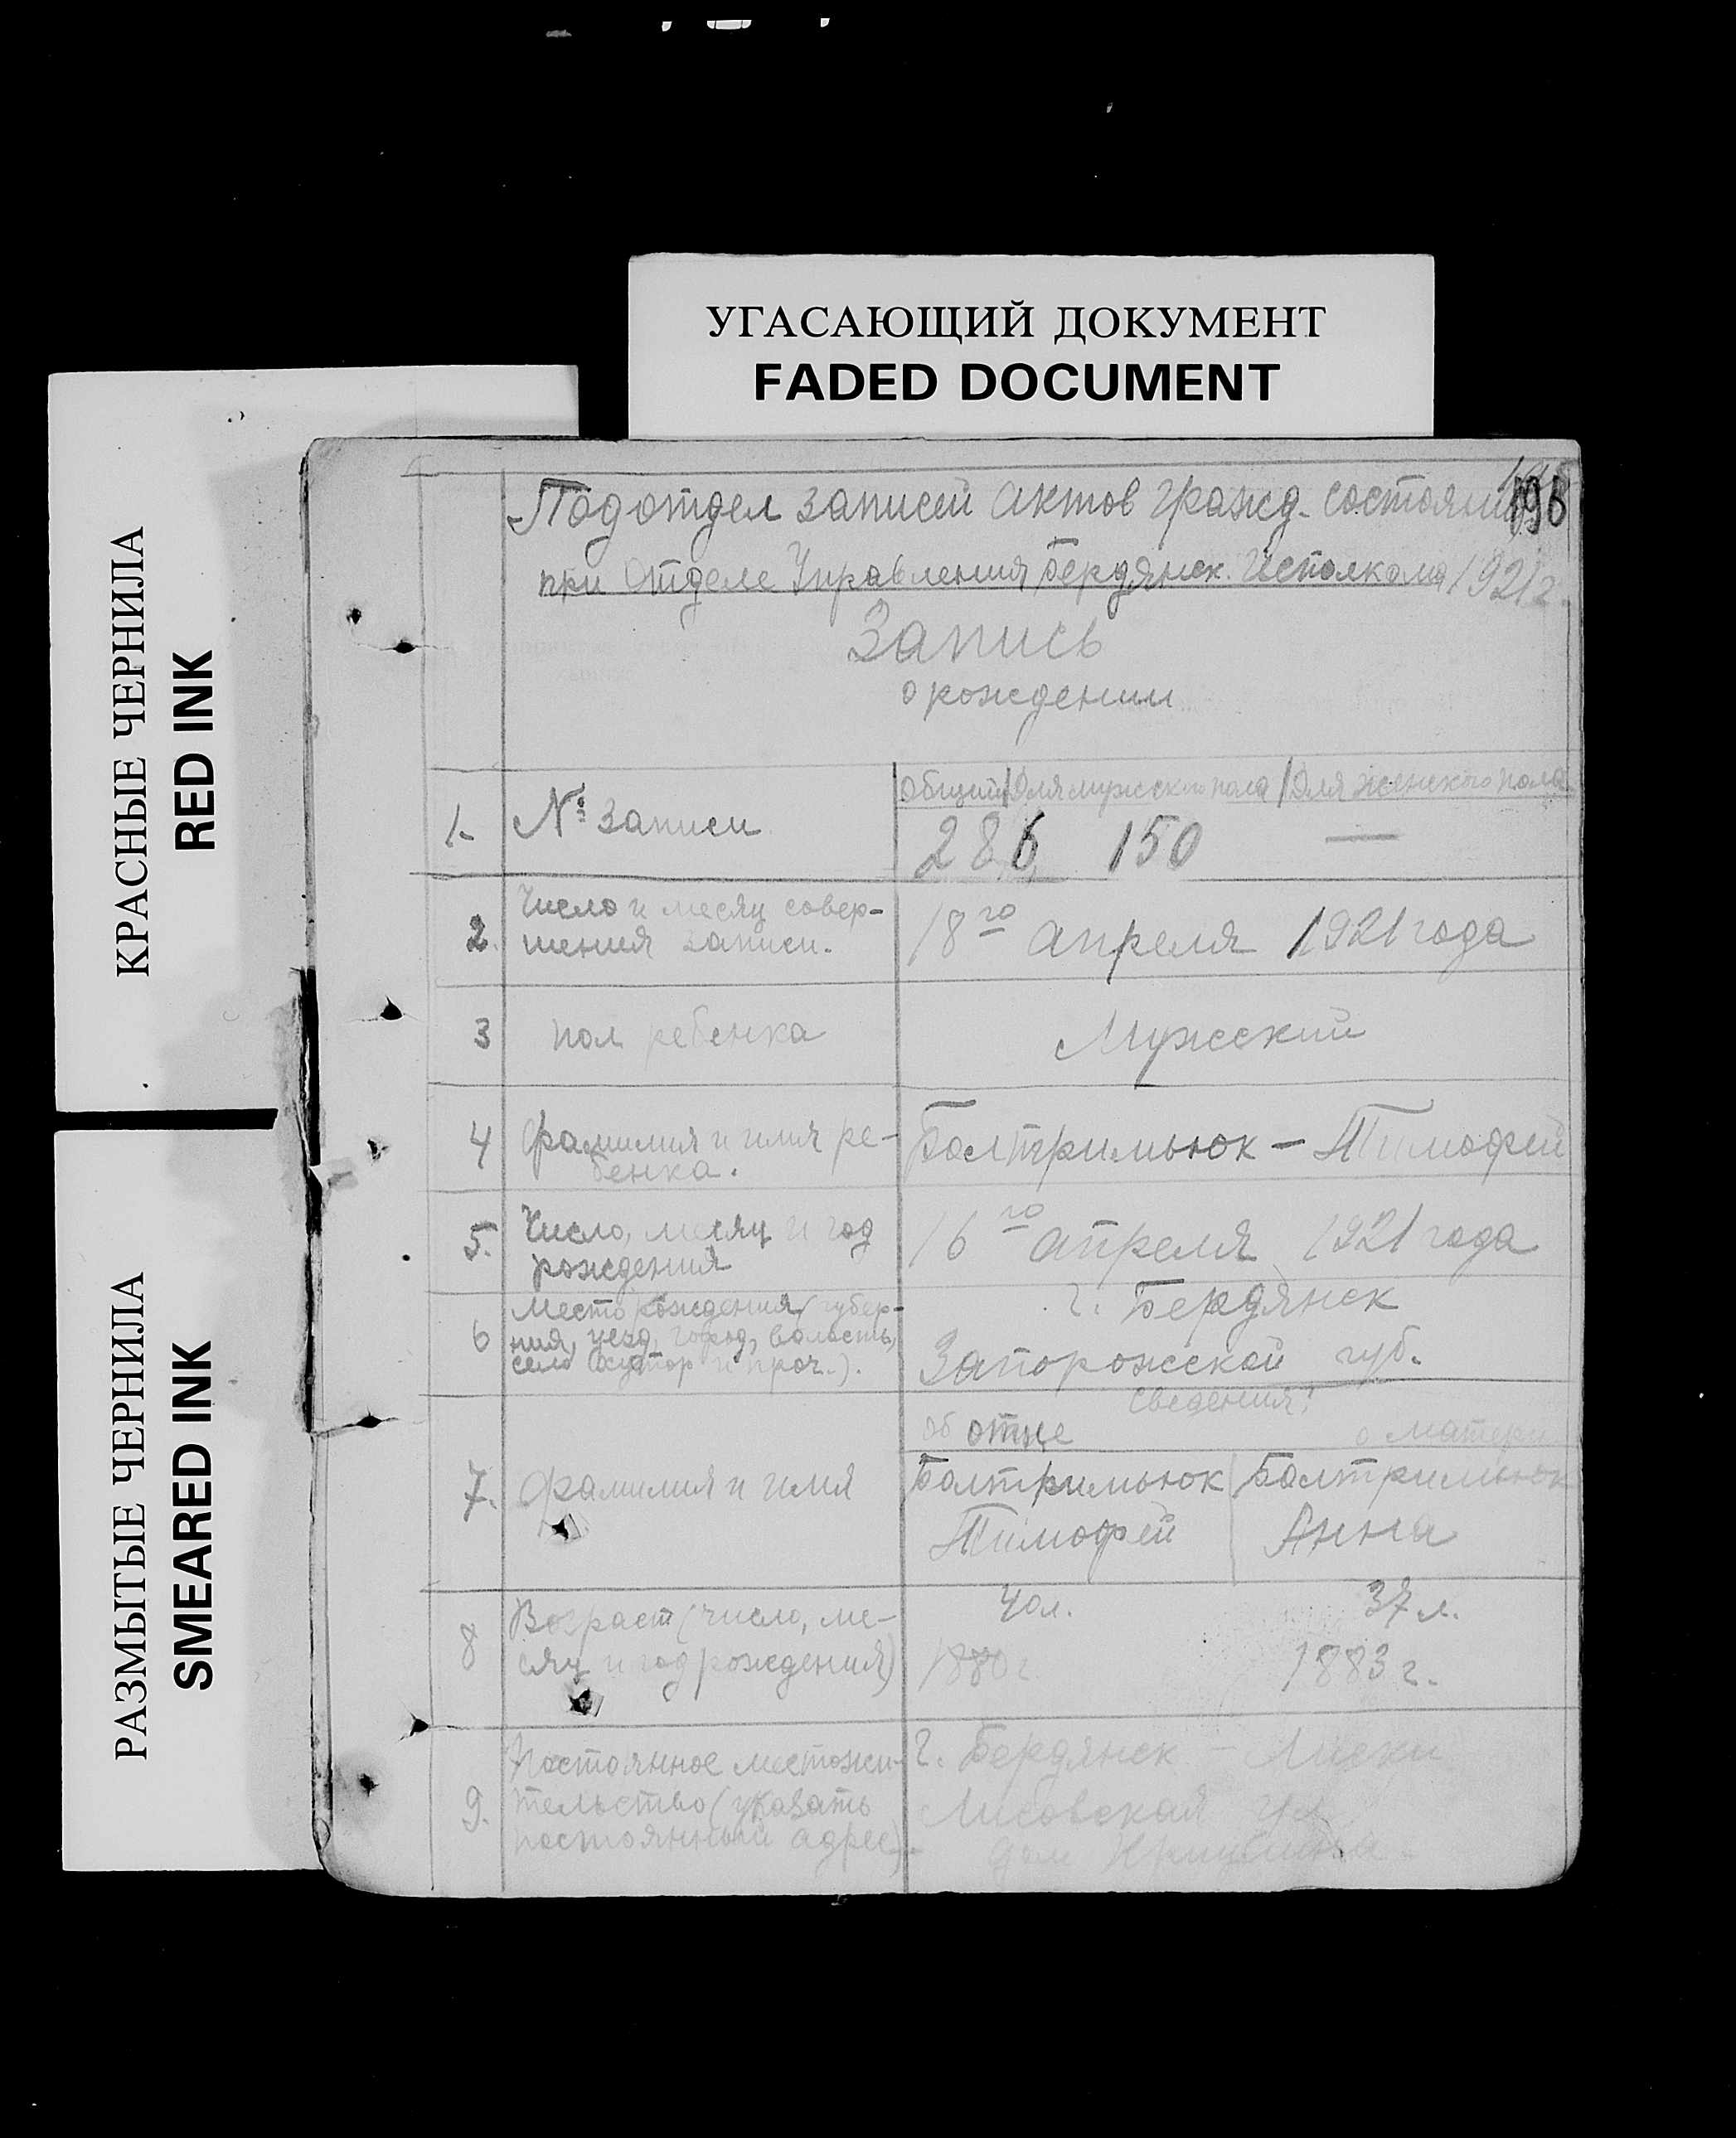 УГАСАЮЩИЙ ДОКУМЕНТ
FADED DOCUMENT
КРАСНЫЕ ЧЕРНИЛА
RED INK
РАЗМЫТЫЕ ЧЕРНИЛА
SMEARED INK
196
Подотдел записей актов гражд. состояния
при Отделе Управления Бердянск. Исполкома 1921 г.
Запись
о рождении
Общий / Для мужского пола / Для женского пола
1. № записи 286 150 —
2. Число и месяц совер-
шения записи. 18го апреля 1921 года
3 пол ребенка Мужский
4 фамилия и имя ре-
бенка. Болтримьюк – Тимофей
5. Число, месяц и год
рождения 16го апреля 1921 года
6 Место рождения (губер-
ния, уезд, город, волость,
село хутор и проч.).
г. Бердянск
Запорожской губ.
Сведения:
об отце о матери
7. фамилия и имя Болтримьюк Болтримьюк
Тимофей Анна
8 Возраст (число, ме-
сяц и год рождения)
40 л. 37 л.
1880 г 1883 г.
9. Постоянное местожи-
тельство (указать
постоянный адрес).
г. Бердянск – Лиски
Лисовская ул
дом